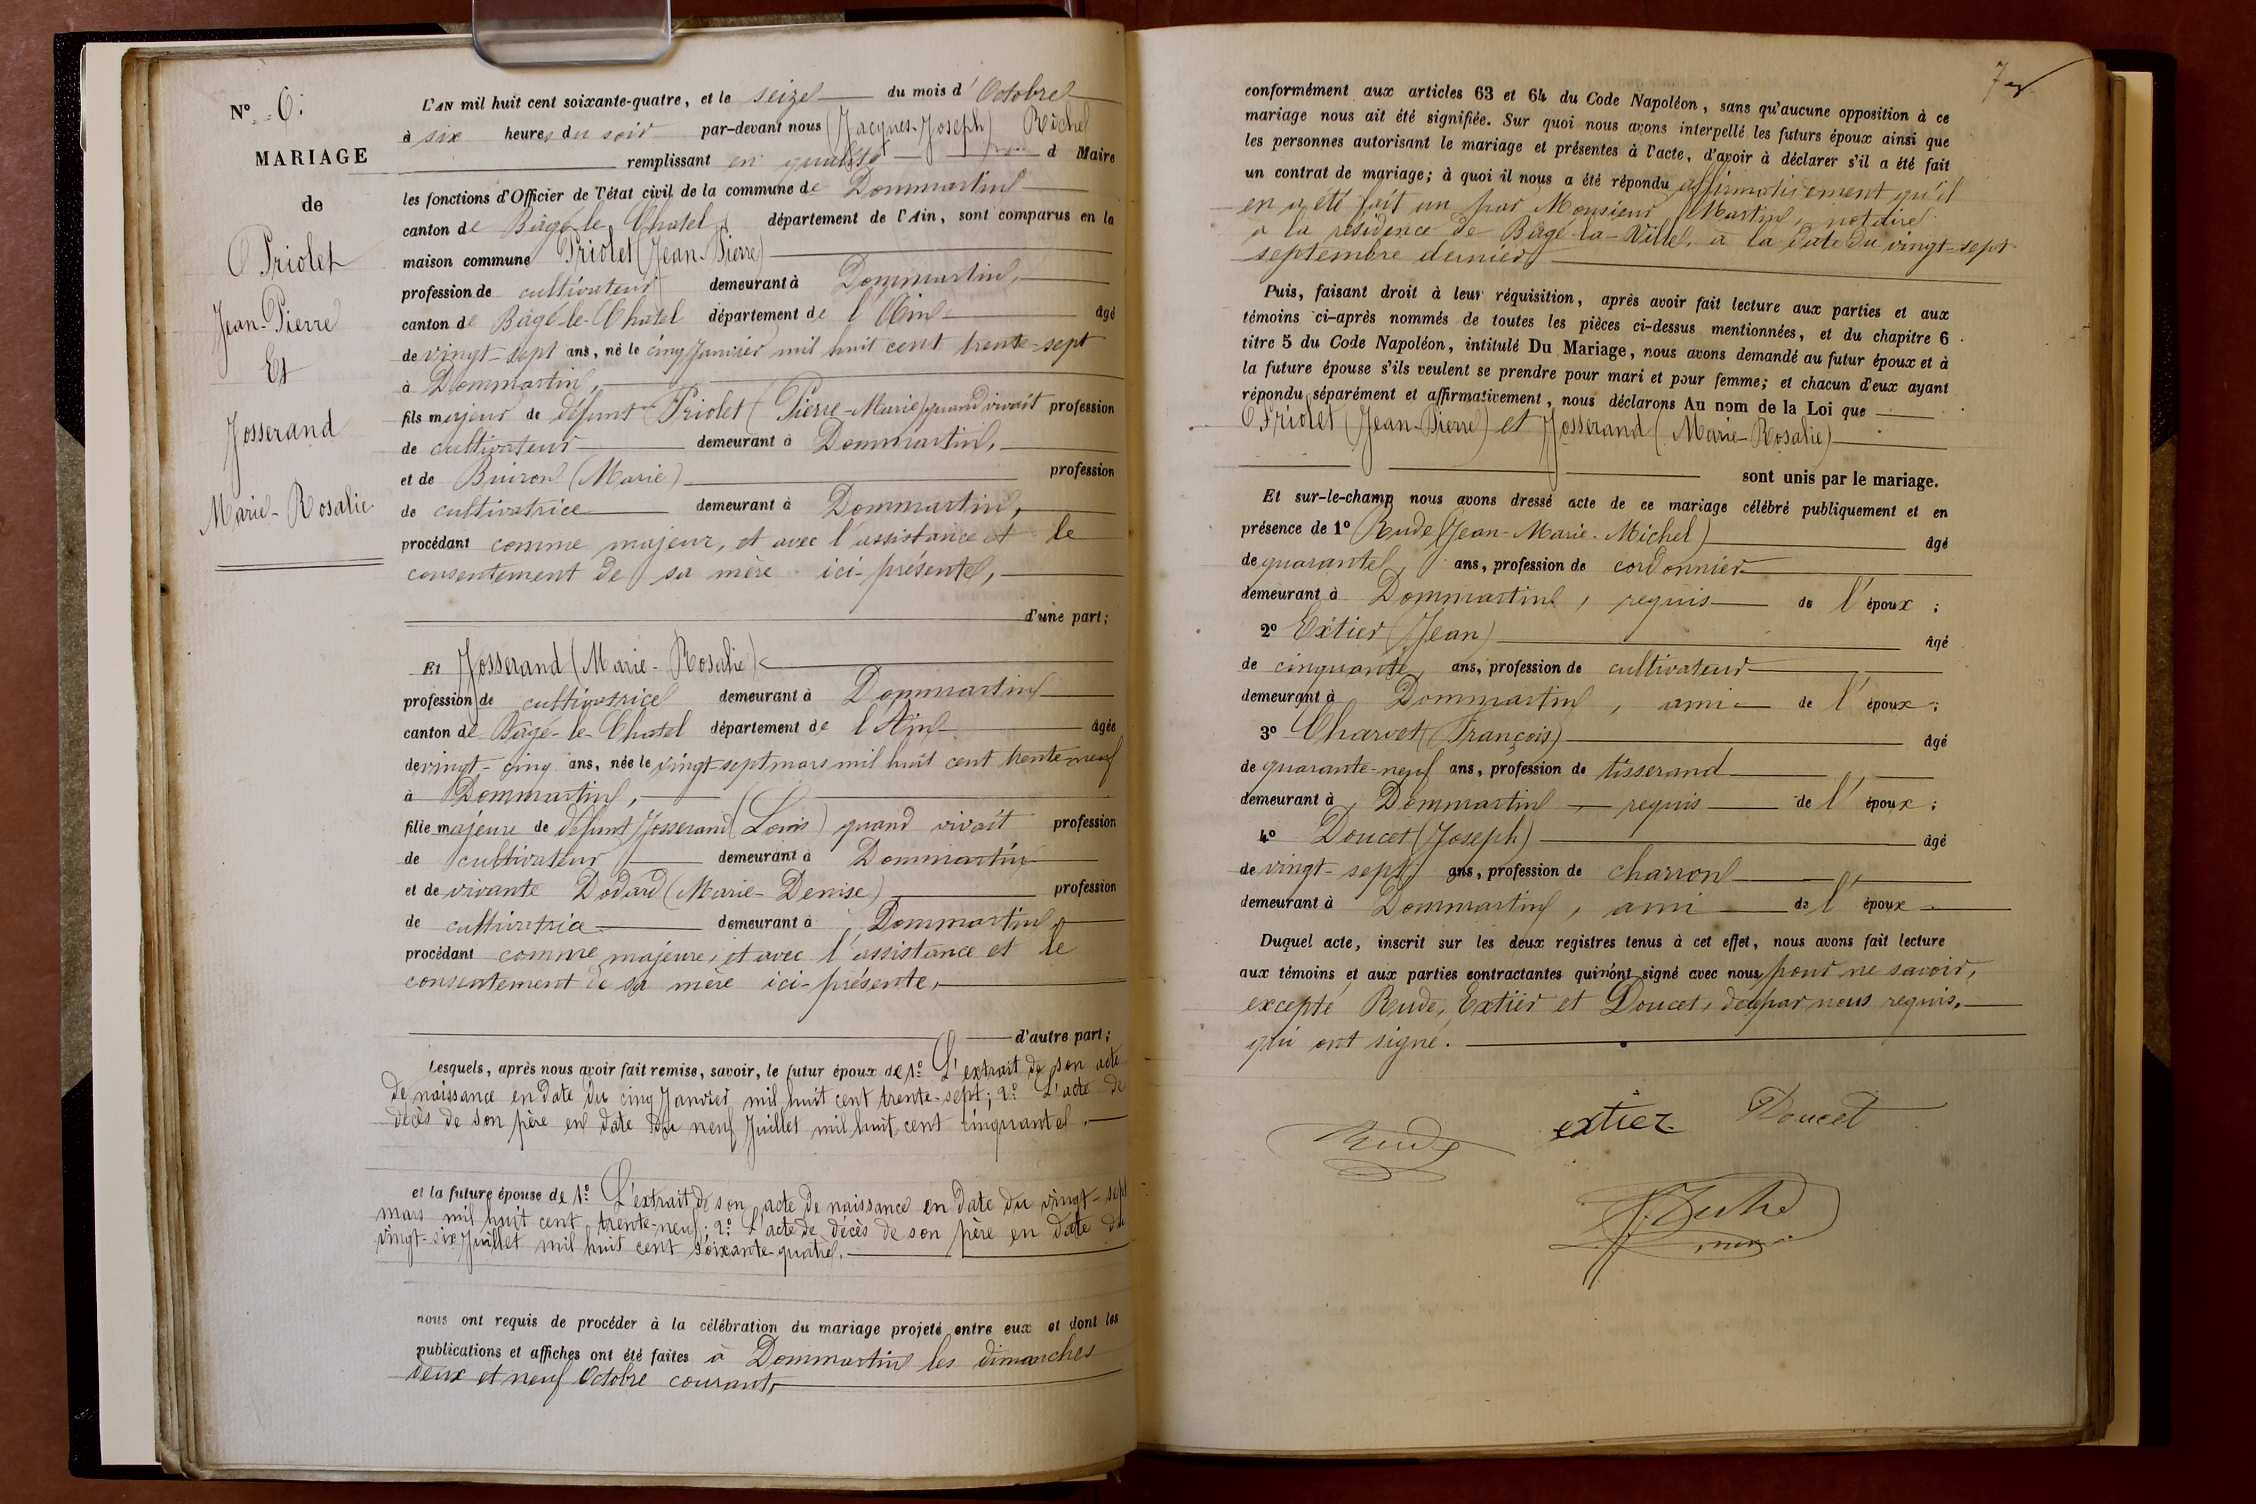 N° 6.
MARIAGE
de
Priolet
Jean-Pierre
Et
Josserand
Marie-Rosalie
L'AN mil huit cent soixante-quatre, et le seize du mois d'Octobre
à six heures du soir par-devant nous (Jacques-Joseph)
remplissant en qualité d Maire
les fonctions d'Officier de l'état civil de la commune de Dommartin
canton de Bâgé-le-Chatel département de l'Ain, sont comparus en la
maison commune Priolet (Jean-Pierre)
profession de cultivateur demeurant à Dommartin,
canton de Bâgé-le-Chatel département de l'Ain âgé
de vingt-sept ans, né le cinq Janvier mil huit cent trente-sept
à Dommartin,
fils majeur de défunt Priolet (Pierre-Marie) quand vivait profession
de cultivateur demeurant à Dommartin,
et de Buiron (Marie) profession
de cultivatrice demeurant à Dommartin,
procédant comme majeur, et avec l'assistance et le
consentement de sa mère ici-présente,
d'une part;
Et Josserand (Marie-Rosalie)
profession de cultivatrice demeurant à Dommartin
canton de Bâgé-le-Chatel département de l'Ain âgée
de vingt-cinq ans, née le vingt-sept mars mil huit cent trente-neuf
à Dommartin,
fille majeure de défunt Josserand (Louis) quand vivait profession
de cultivateur demeurant à Dommartin
et de vivante Dodard (Marie-Denise) profession
de cultivatrice demeurant à Dommartin,
procédant comme majeure, et avec l'assistance et le
consentement de sa mère ici-présente,
d'autre part;
Lesquels, après nous avoir fait remise, savoir, le futur époux de 1° L'extrait de son acte
de naissance en date du cinq Janvier mil huit cent trente-sept; 2° L'acte de
décès de son père en date du neuf Juillet mil huit cent cinquante,
et la future épouse de 1° L'extrait de son acte de naissance en date du vingt-sept
mars mil huit cent trente-neuf; 2° L'acte de décès de son père en date du
vingt-six Juillet mil huit cent soixante-quatre.
nous ont requis de procéder à la célébration du mariage projeté entre eux et dont les
publications et affiches ont été faites à Dommartin les dimanches
deux et neuf Octobre courant,
7
conformément aux articles 63 et 64 du Code Napoléon, sans qu'aucune opposition à ce
mariage nous ait été signifiée. Sur quoi nous avons interpellé les futurs époux ainsi que
les personnes autorisant le mariage et présentes à l'acte, d'avoir à déclarer s'il a été fait
un contrat de mariage; à quoi il nous a été répondu affirmativement qu'il
en a été fait un par Monsieur Martin, notaire
à la résidence de Bâgé-la-Ville, à la date du vingt-sept
septembre dernier,
Puis, faisant droit à leur réquisition, après avoir fait lecture aux parties et aux
témoins ci-après nommés de toutes les pièces ci-dessus mentionnées, et du chapitre 6
titre 5 du Code Napoléon, intitulé Du Mariage, nous avons demandé au futur époux et à
la future épouse s'ils veulent se prendre pour mari et pour femme; et chacun d'eux ayant
répondu séparément et affirmativement, nous déclarons Au nom de la Loi que
Priolet (Jean-Pierre) et Josserand (Marie-Rosalie)
sont unis par le mariage.
Et sur-le-champ nous avons dressé acte de ce mariage célébré publiquement et en
présence de 1° Rude (Jean-Marie-Michel) âgé
de quarante, ans, profession de cordonnier
demeurant à Dommartin, requis de l'époux;
2° Extier (Jean) âgé
de cinquante, ans, profession de cultivateur
demeurant à Dommartin, ami de l'époux;
3° Charvet (François) âgé
de quarante-neuf ans, profession de tisserand
demeurant à Dommartin requis de l'époux;
4° Doucet (Joseph) âgé
de vingt-sept ans, profession de charron
demeurant à Dommartin, ami de l'époux
Duquel acte, inscrit sur les deux registres tenus à cet effet, nous avons fait lecture
aux témoins et aux parties contractantes qui n'ont signé avec nous pour ne savoir,
excepté Rude, Extier et Doucet, de par nous requis,
qui ont signé.
Rude extier Doucet